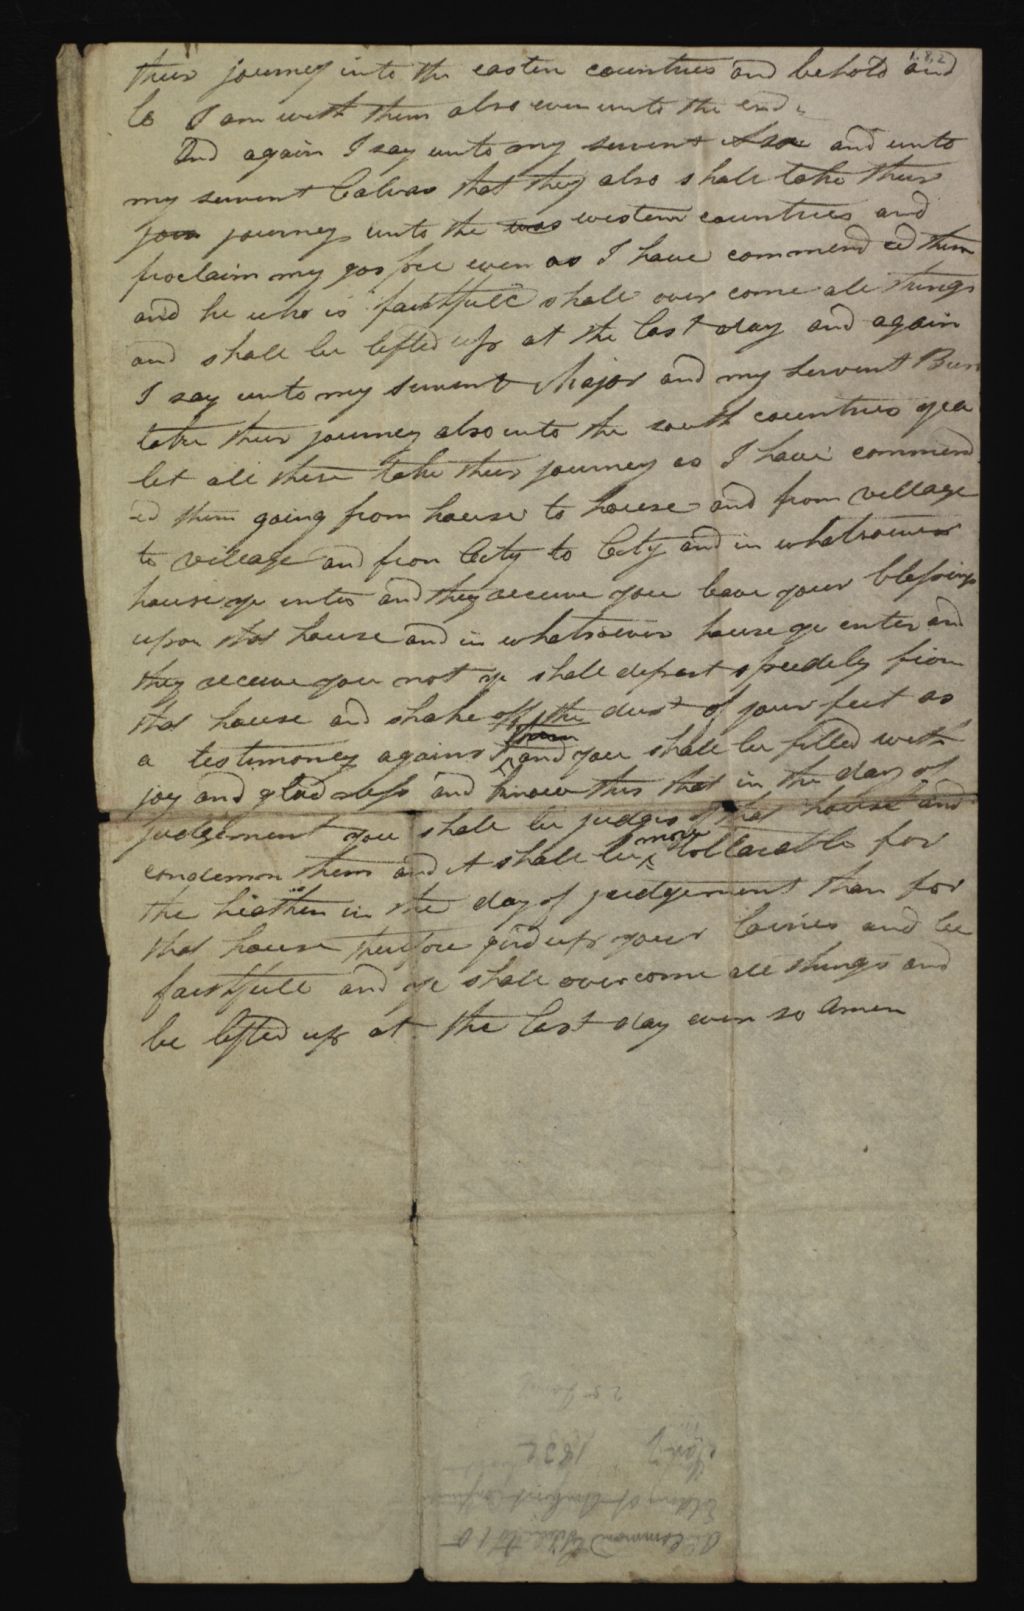 1.8.2
their journey into the easten countries and behold and
lo I am with them also even unto the end
And again I say unto my servent Asa and unto
my servent Calvas that they also shall take their
jour journey unto the was western countries and
proclaim my gospel even as I have commend ed them
and he who is faithfull shall over come all things
and shall be lifted up at the last day and again
I say unto my servent Major and my servent Burr
take their journey also into the south countries yea
let all these take their journey as I have commend
ed them going from house to house and from village
to village and from City to City and in whatsoever
house ye enter and they receive you leave your blessings
upon that house and in whatsoever house ye enter and
they receive you not ye shall depart speedily from
that house and shake off the dust of your feet as
a testimoney against them and you shall be filled with
joy and glad ness and know this that in the day of
judgement you shall be judges of that house and
condemon them and it shall be more tollarable for
the heathen in the day of judgement than for
that house therefore gird up your loines and be
faithfull and ye shall overcome all things and
be lifted up at the last day even so Amen
25 Jany
1832
A Commandment to
Elders at Amherst